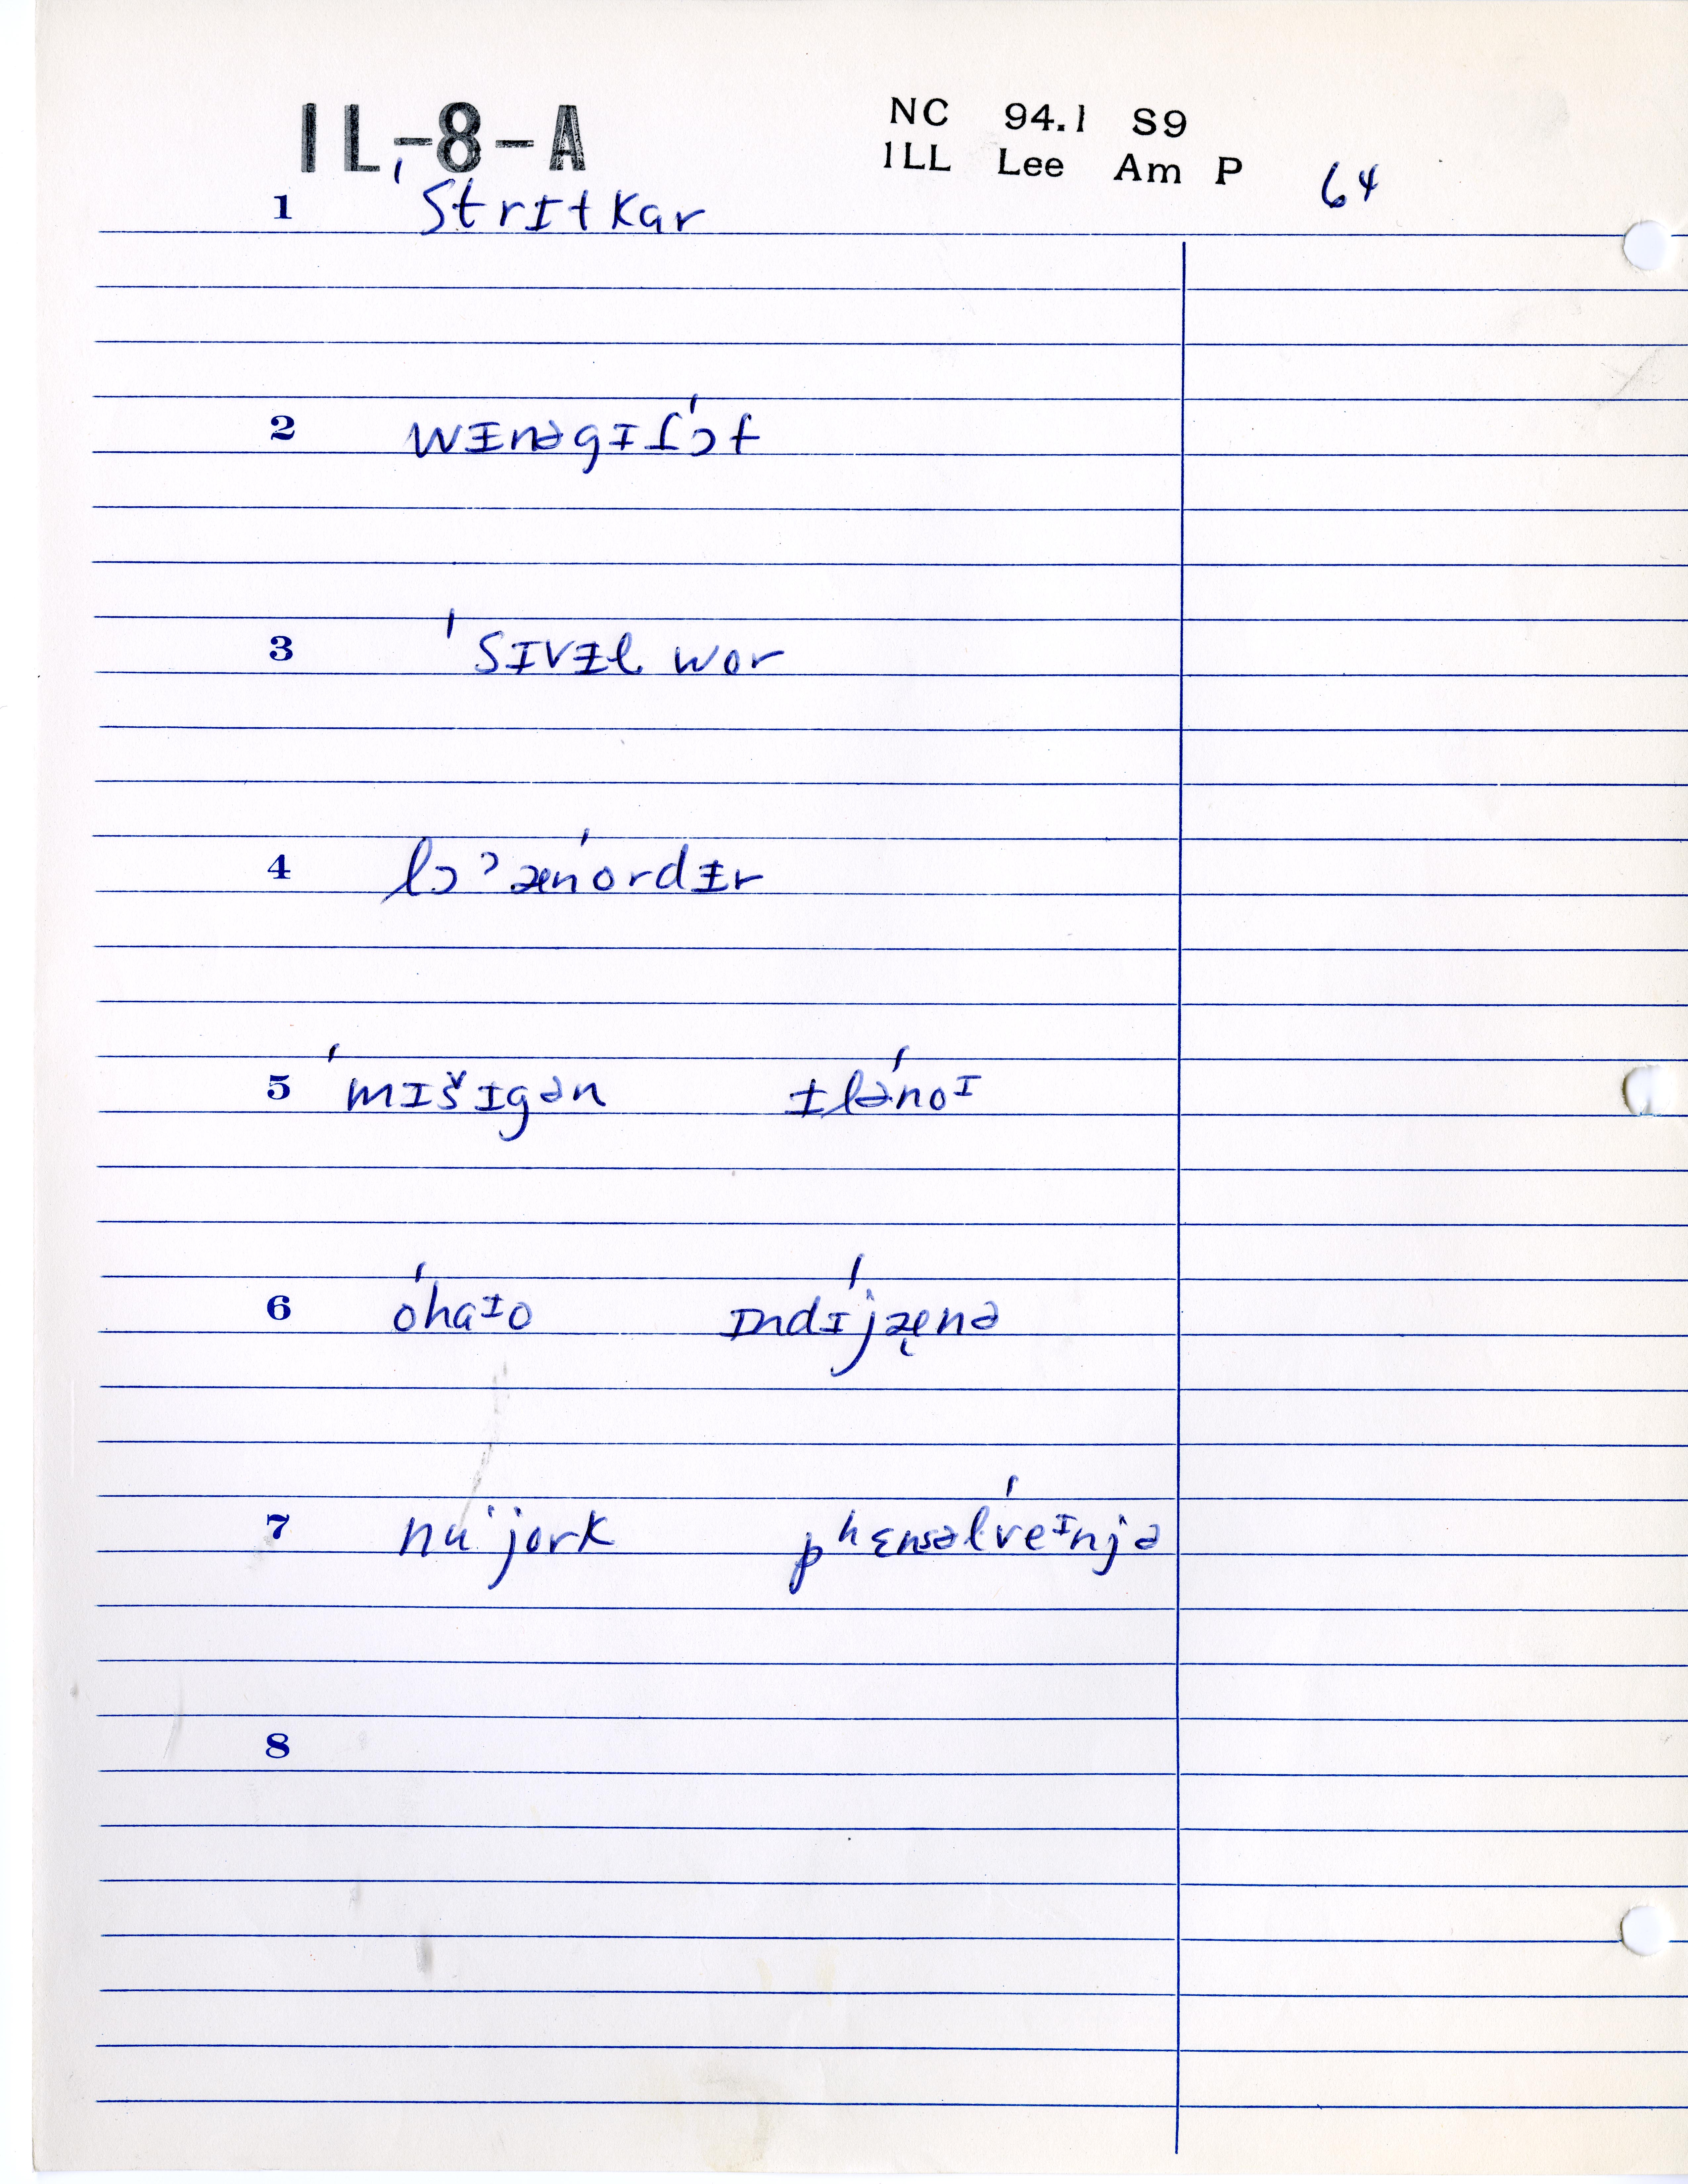 IL-8-A
NC 94.1 S9
ILL Lee Am P 64
1 ˈstrɪtkar
2 wɪnəgɪɾˈɔt
3 ˈsɪvɨl wor
4 lɔˀænˈordɨr
5 ˈmɪšɪgən ɨləˈnoᴵ
6 ˈohaᴵo ɪndɪˈjæ̨nə
7 nuˈjork pʰɛnsəlˈveᴵnjə
8